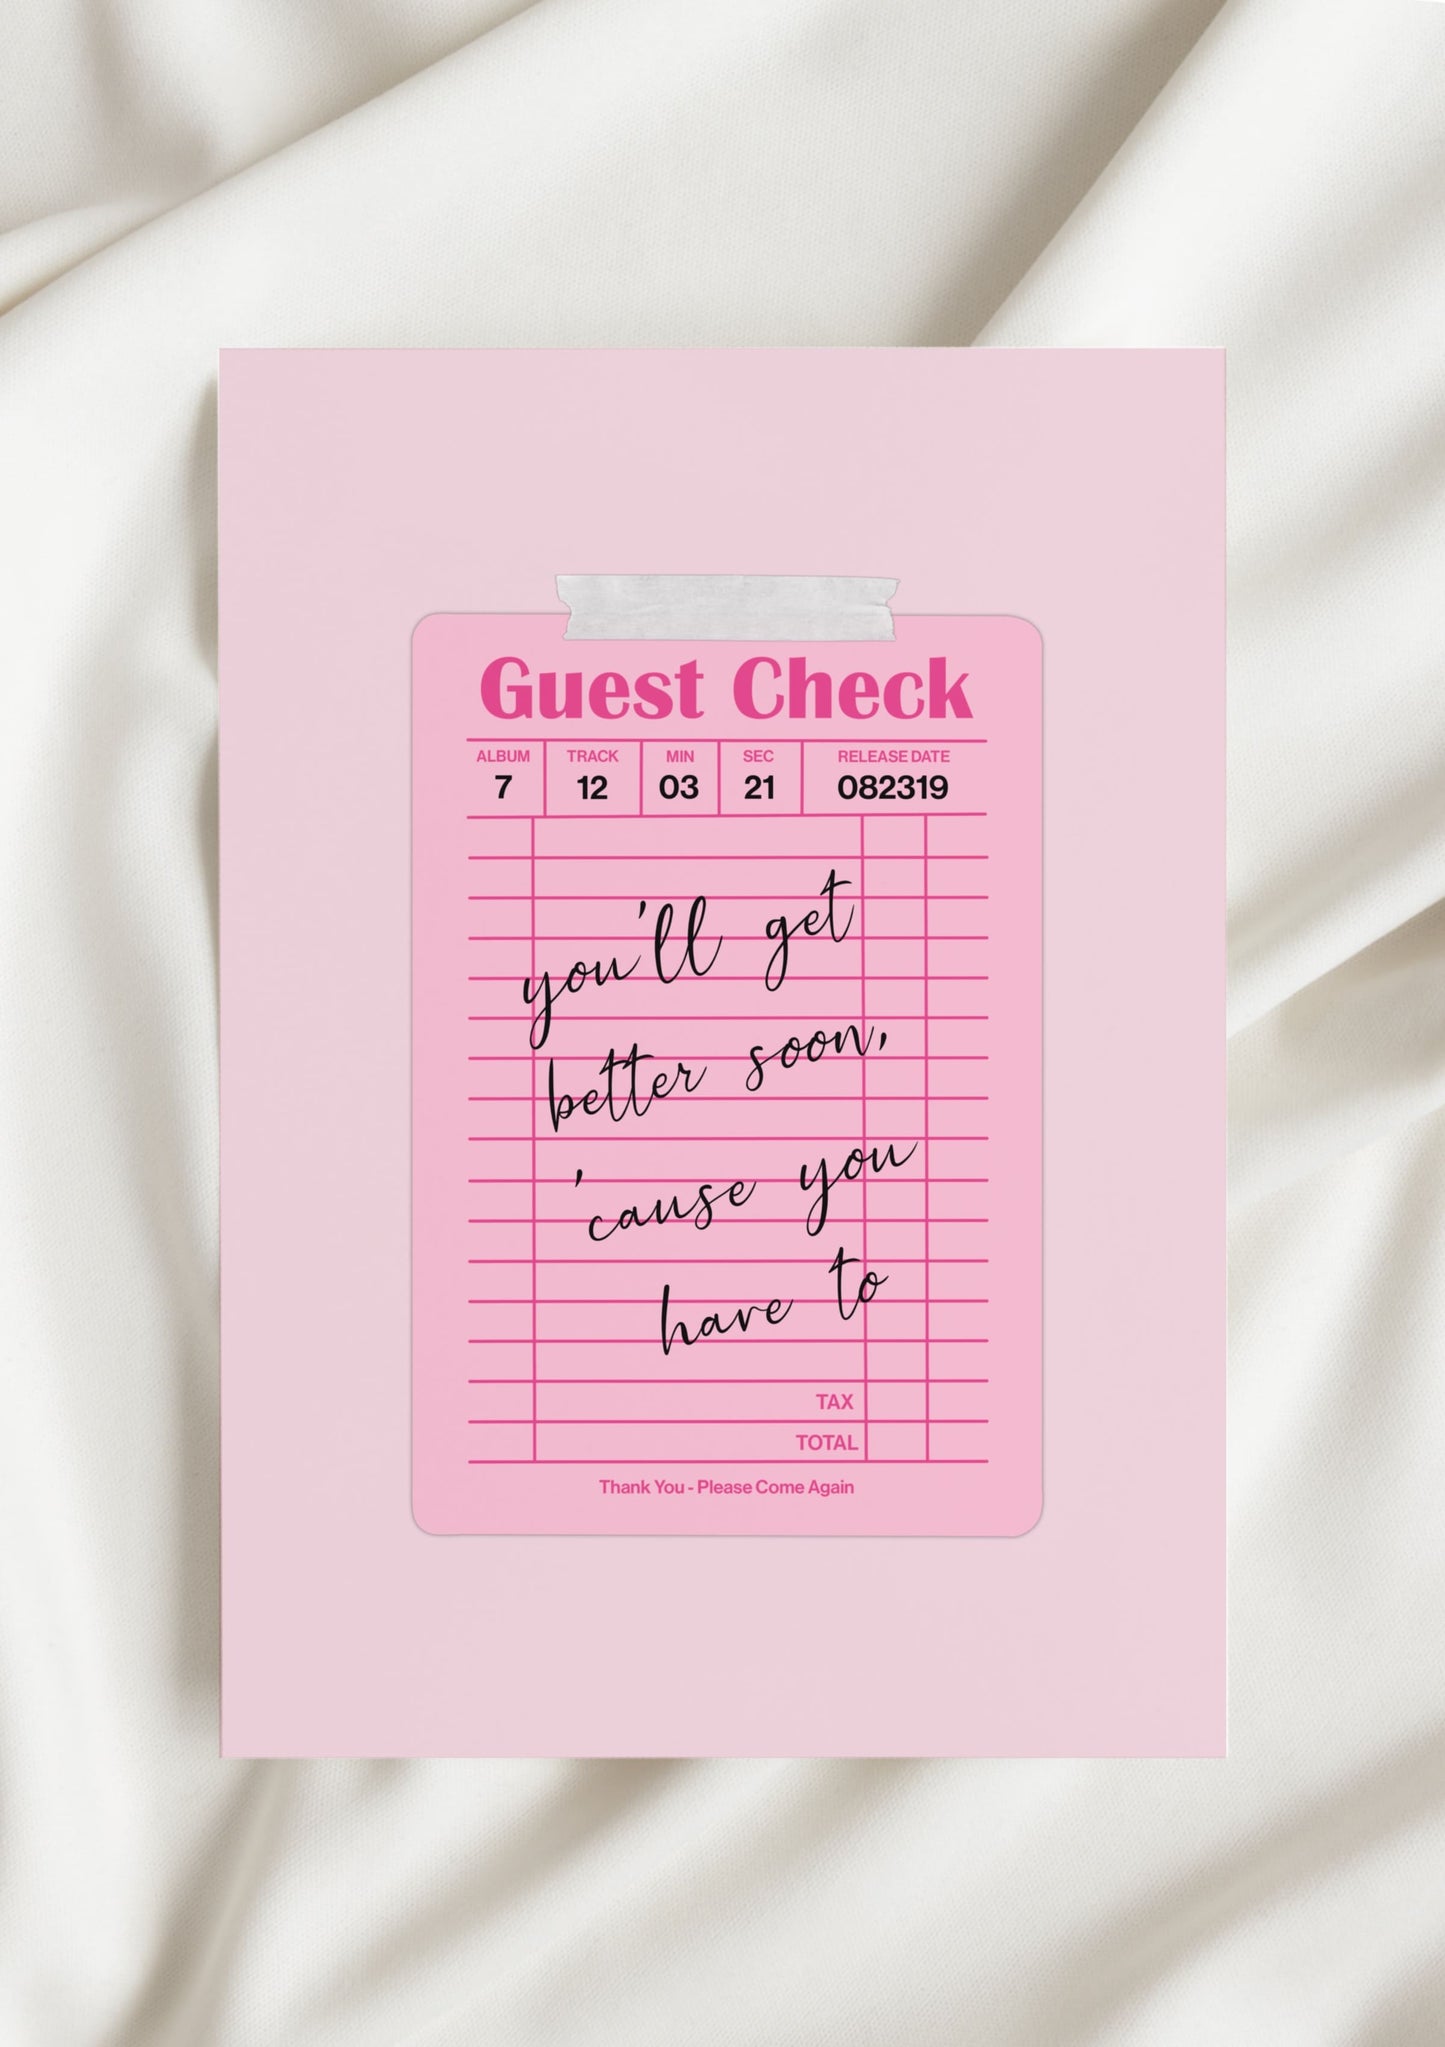 Guest Check
ALBUM TRACK MIN SEC RELEASE DATE
7 12 03 21 082319
you'll get
better soon,
'cause you
have to
TAX
TOTAL
Thank You - Please Come Again